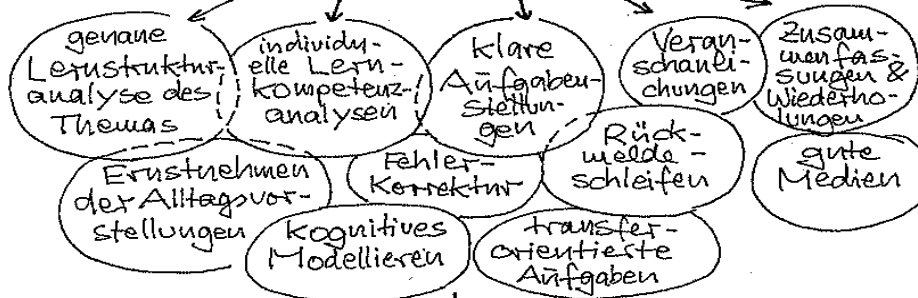 genaue
Lernstruktur-
analyse des
Themas
individu-
elle Lern-
kompetenz-
analysen
klare
Aufgaben-
stellun-
gen
Veran-
schauli-
chungen
Zusam-
menfas-
sungen &
Wiederho-
lungen
Ernstnehmen
der Alltagsvor-
stellungen
Fehler-
Korrektur
Rück-
melde-
schleifen
gute
Medien
kognitives
Modellieren
transfer-
orientierte
Aufgaben